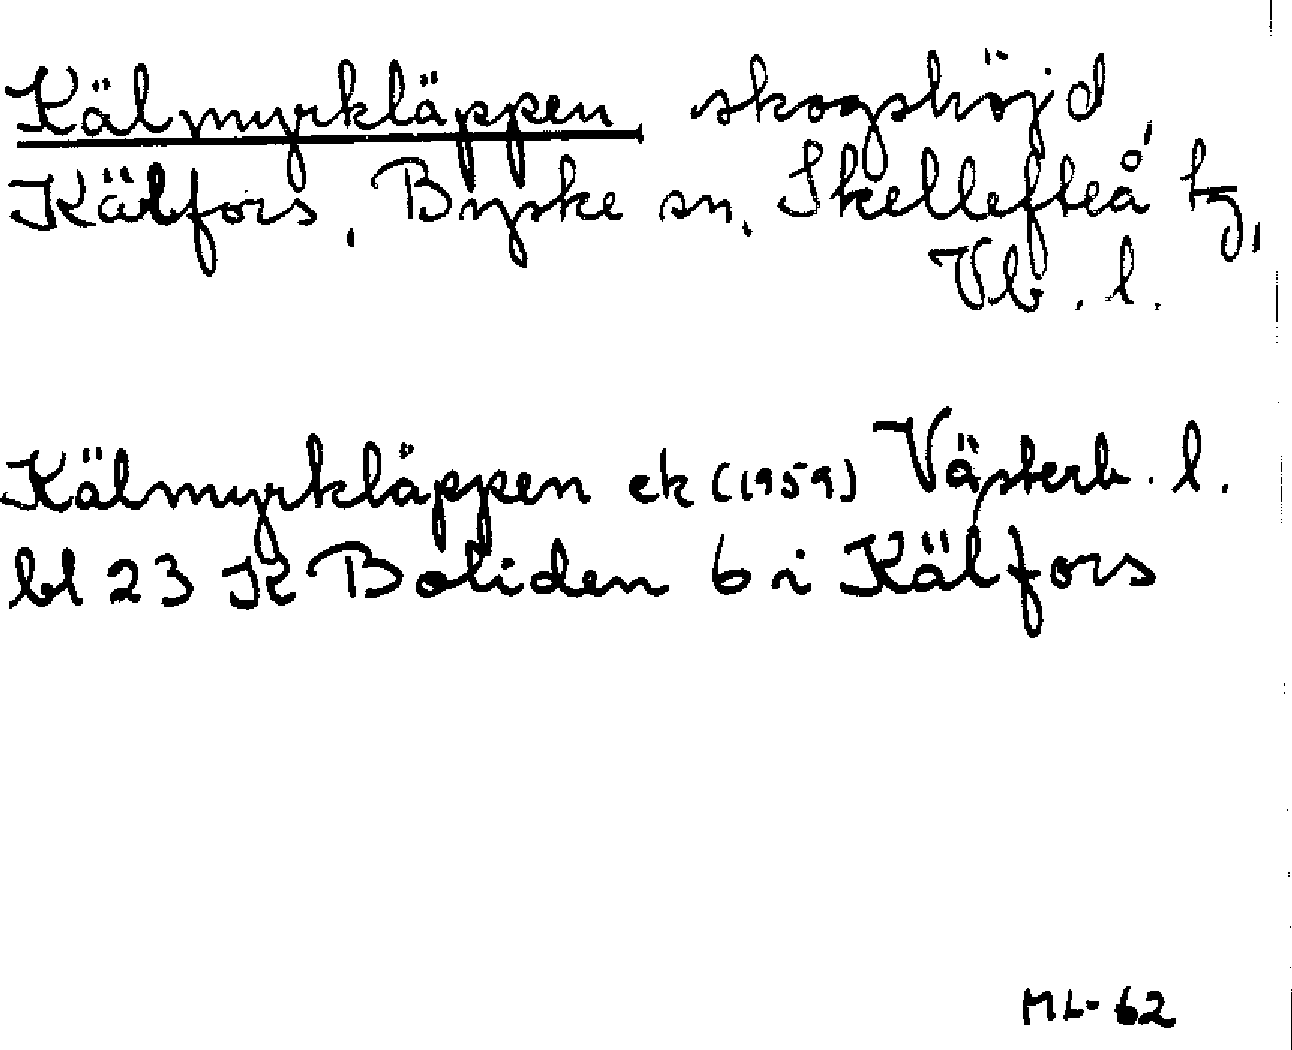 Kälmyrkläppen, skogshöjd,
Kälfors, Byske sn, Skellefteå tg,
Vb. l.
Kälmyrkläppen ek (1959) Västerb. l.
bl 23 K Boliden 6 i Kälfors
ML-62